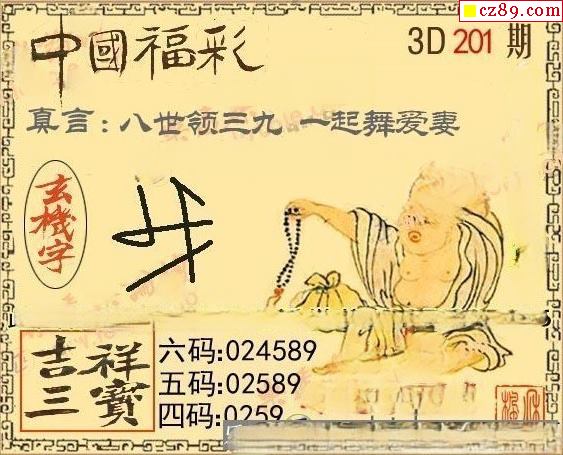 cz89.com
中國福彩
3D 201 期
真言:八世领三九 一起舞爱妻
玄機字
吉祥三寶
六码:024589
五码:02589
四码:0259